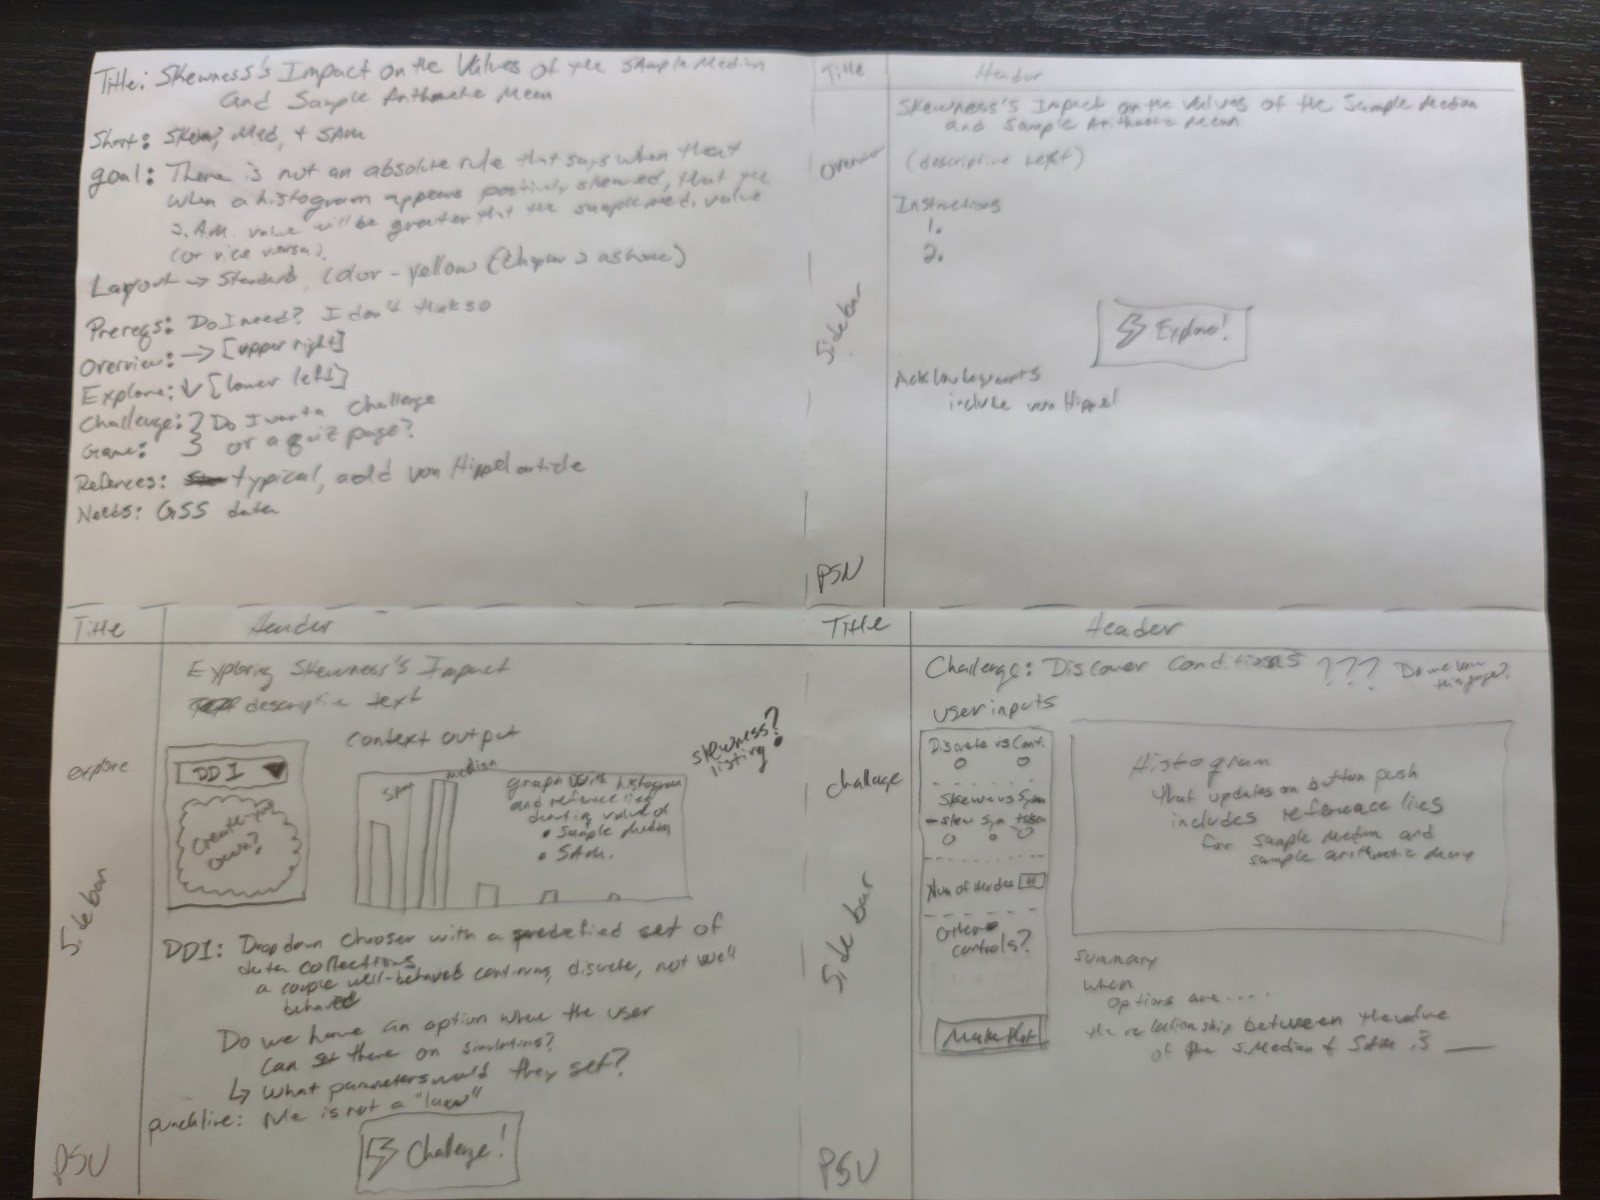 Title: Skewness's Impact on the Values of the Sample Median
and Sample Arithmetic Mean
Short: Skew, Med, + SAM
goal: There is not an absolute rule that says when that
when a histogram appears positively skewed, that the
S.A.M. value will be greater that the sample med. value
(or vice versa).
Layout → Standard, Color - yellow (Chapter 2
Prereqs: Do I need? I don't think so
Overview: → [upper right]
Explore: ↓ [lower left]
Challenge: } Do I want a challenge
Game: } or a quiz page?
References: typical, add von Hippel article
Needs: GSS data
Title
Header
Overview
Sidebar
PSU
Skewness's Impact on the Values of the Sample Median
and Sample Arithmetic Mean
(descriptive text)
Instructions
1.
2.
Explore!
Acknowledgements
include von Hippel
Title
Header
explore
Sidebar
PSU
Exploring Skewness's Impact
descriptive text
DDI
Create-your
own?
Context output
skewness?
listing?
SAM
median
graph with histogram
and reference lines
denoting value of
• Sample Median
• SAM.
DDI: Drop down chooser with a predefied set of
data collections
a couple well-behaved continuous, discrete, not well
behaved
Do we have an option where the user
can set there on simulations?
↳ What parameters would they set?
punchline: Rule is not a "law"
Challenge!
Title
Header
challenge
Sidebar
PSU
Challenge: Discover Conditions ??? Do we want
this page?
User inputs
Discrete vs Cont.
Skew vs Sym
-skew Sym +skew
Num of Modes #
Other
controls?
Make Plot
Histogram
that updates on button push
includes reference lies
for sample median and
sample arithmetic mean
Summary
When
options are....
the relationship between the value
of the SMedian & SAM is ___